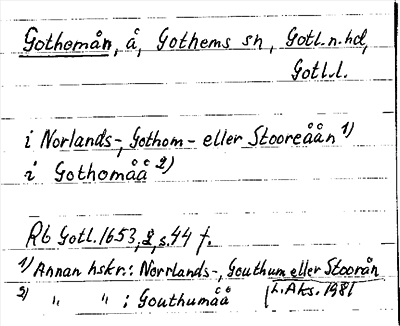 Gothemån, å, Gothems sn, Gotl. n. hd,
Gotl. l.
i Norlands-, Gothom- eller Stooreåån 1)
i Gothomåå 2)
Rb Gotl. 1653, 2, s. 44 f.
1) Annan hskr.: Norrlands-, Gouthum eller Stoorån
2) " " : Gouthumåå
L. Aks. 1981